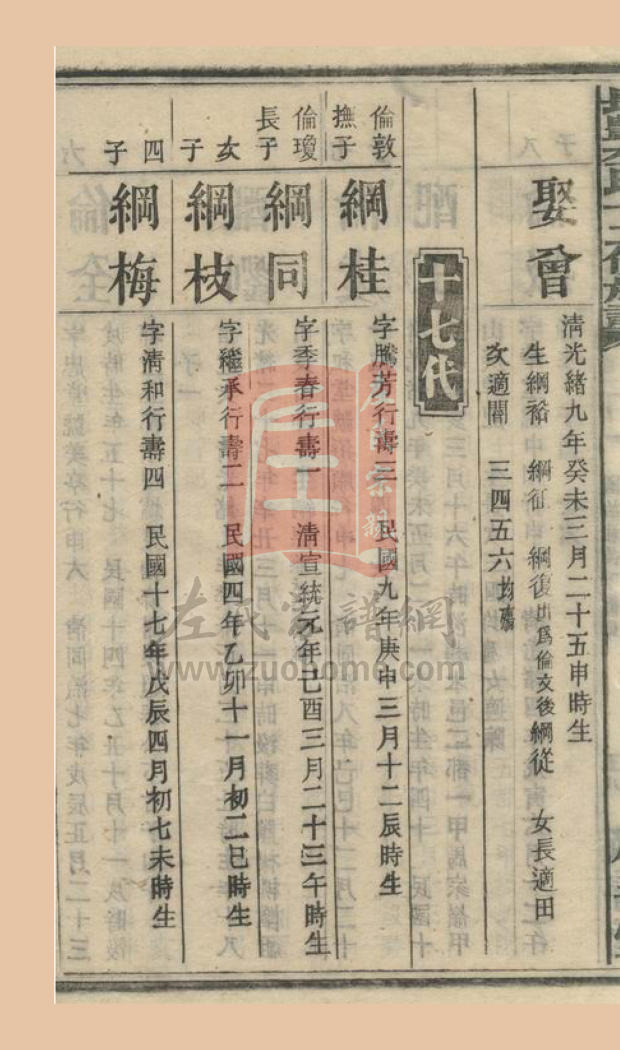 娶曾
清光緒九年癸未三月二十五申時生
生綱裕 綱征 綱復出爲倫文後綱從 女長適田
次適閻 三四五六均殤
十七代
倫敦撫子
綱桂
字騰芳行壽三 民國九年庚申三月十二辰時生
倫瓊長子
綱同
字季春行壽一 清宣統元年己酉三月二十三午時生
次子
綱枝
字繼承行壽二 民國四年乙卯十一月初二巳時生
四子
綱梅
字清和行壽四 民國十七年戊辰四月初七未時生
左氏宗譜網
www.zuohome.com